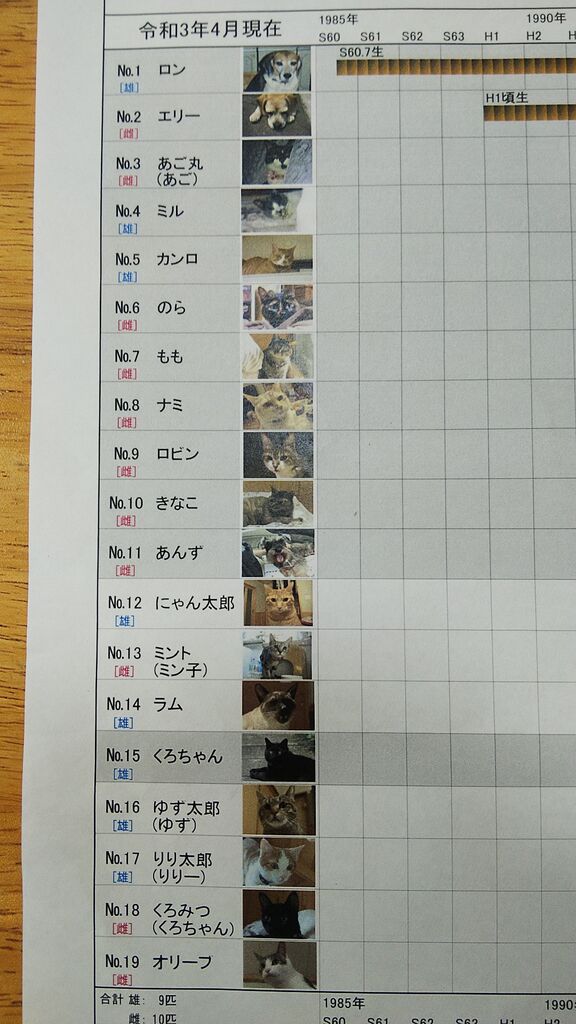 令和3年4月現在
1985年 1990年
S60 S61 S62 S63 H1 H2
No.1 ロン
[雄]
S60.7生
No.2 エリー
[雌]
H1頃生
No.3 あご丸
[雌] (あご)
No.4 ミル
[雄]
No.5 カンロ
[雄]
No.6 のら
[雌]
No.7 もも
[雌]
No.8 ナミ
[雌]
No.9 ロビン
[雌]
No.10 きなこ
[雌]
No.11 あんず
[雌]
No.12 にゃん太郎
[雄]
No.13 ミント
[雌] (ミン子)
No.14 ラム
[雄]
No.15 くろちゃん
[雄]
No.16 ゆず太郎
[雄] (ゆず)
No.17 りり太郎
[雄] (りりー)
No.18 くろみつ
[雌] (くろちゃん)
No.19 オリーブ
[雌]
合計 雄: 9匹
雌: 10匹
1985年 1990
S60 S61 S62 S63 H1 H2